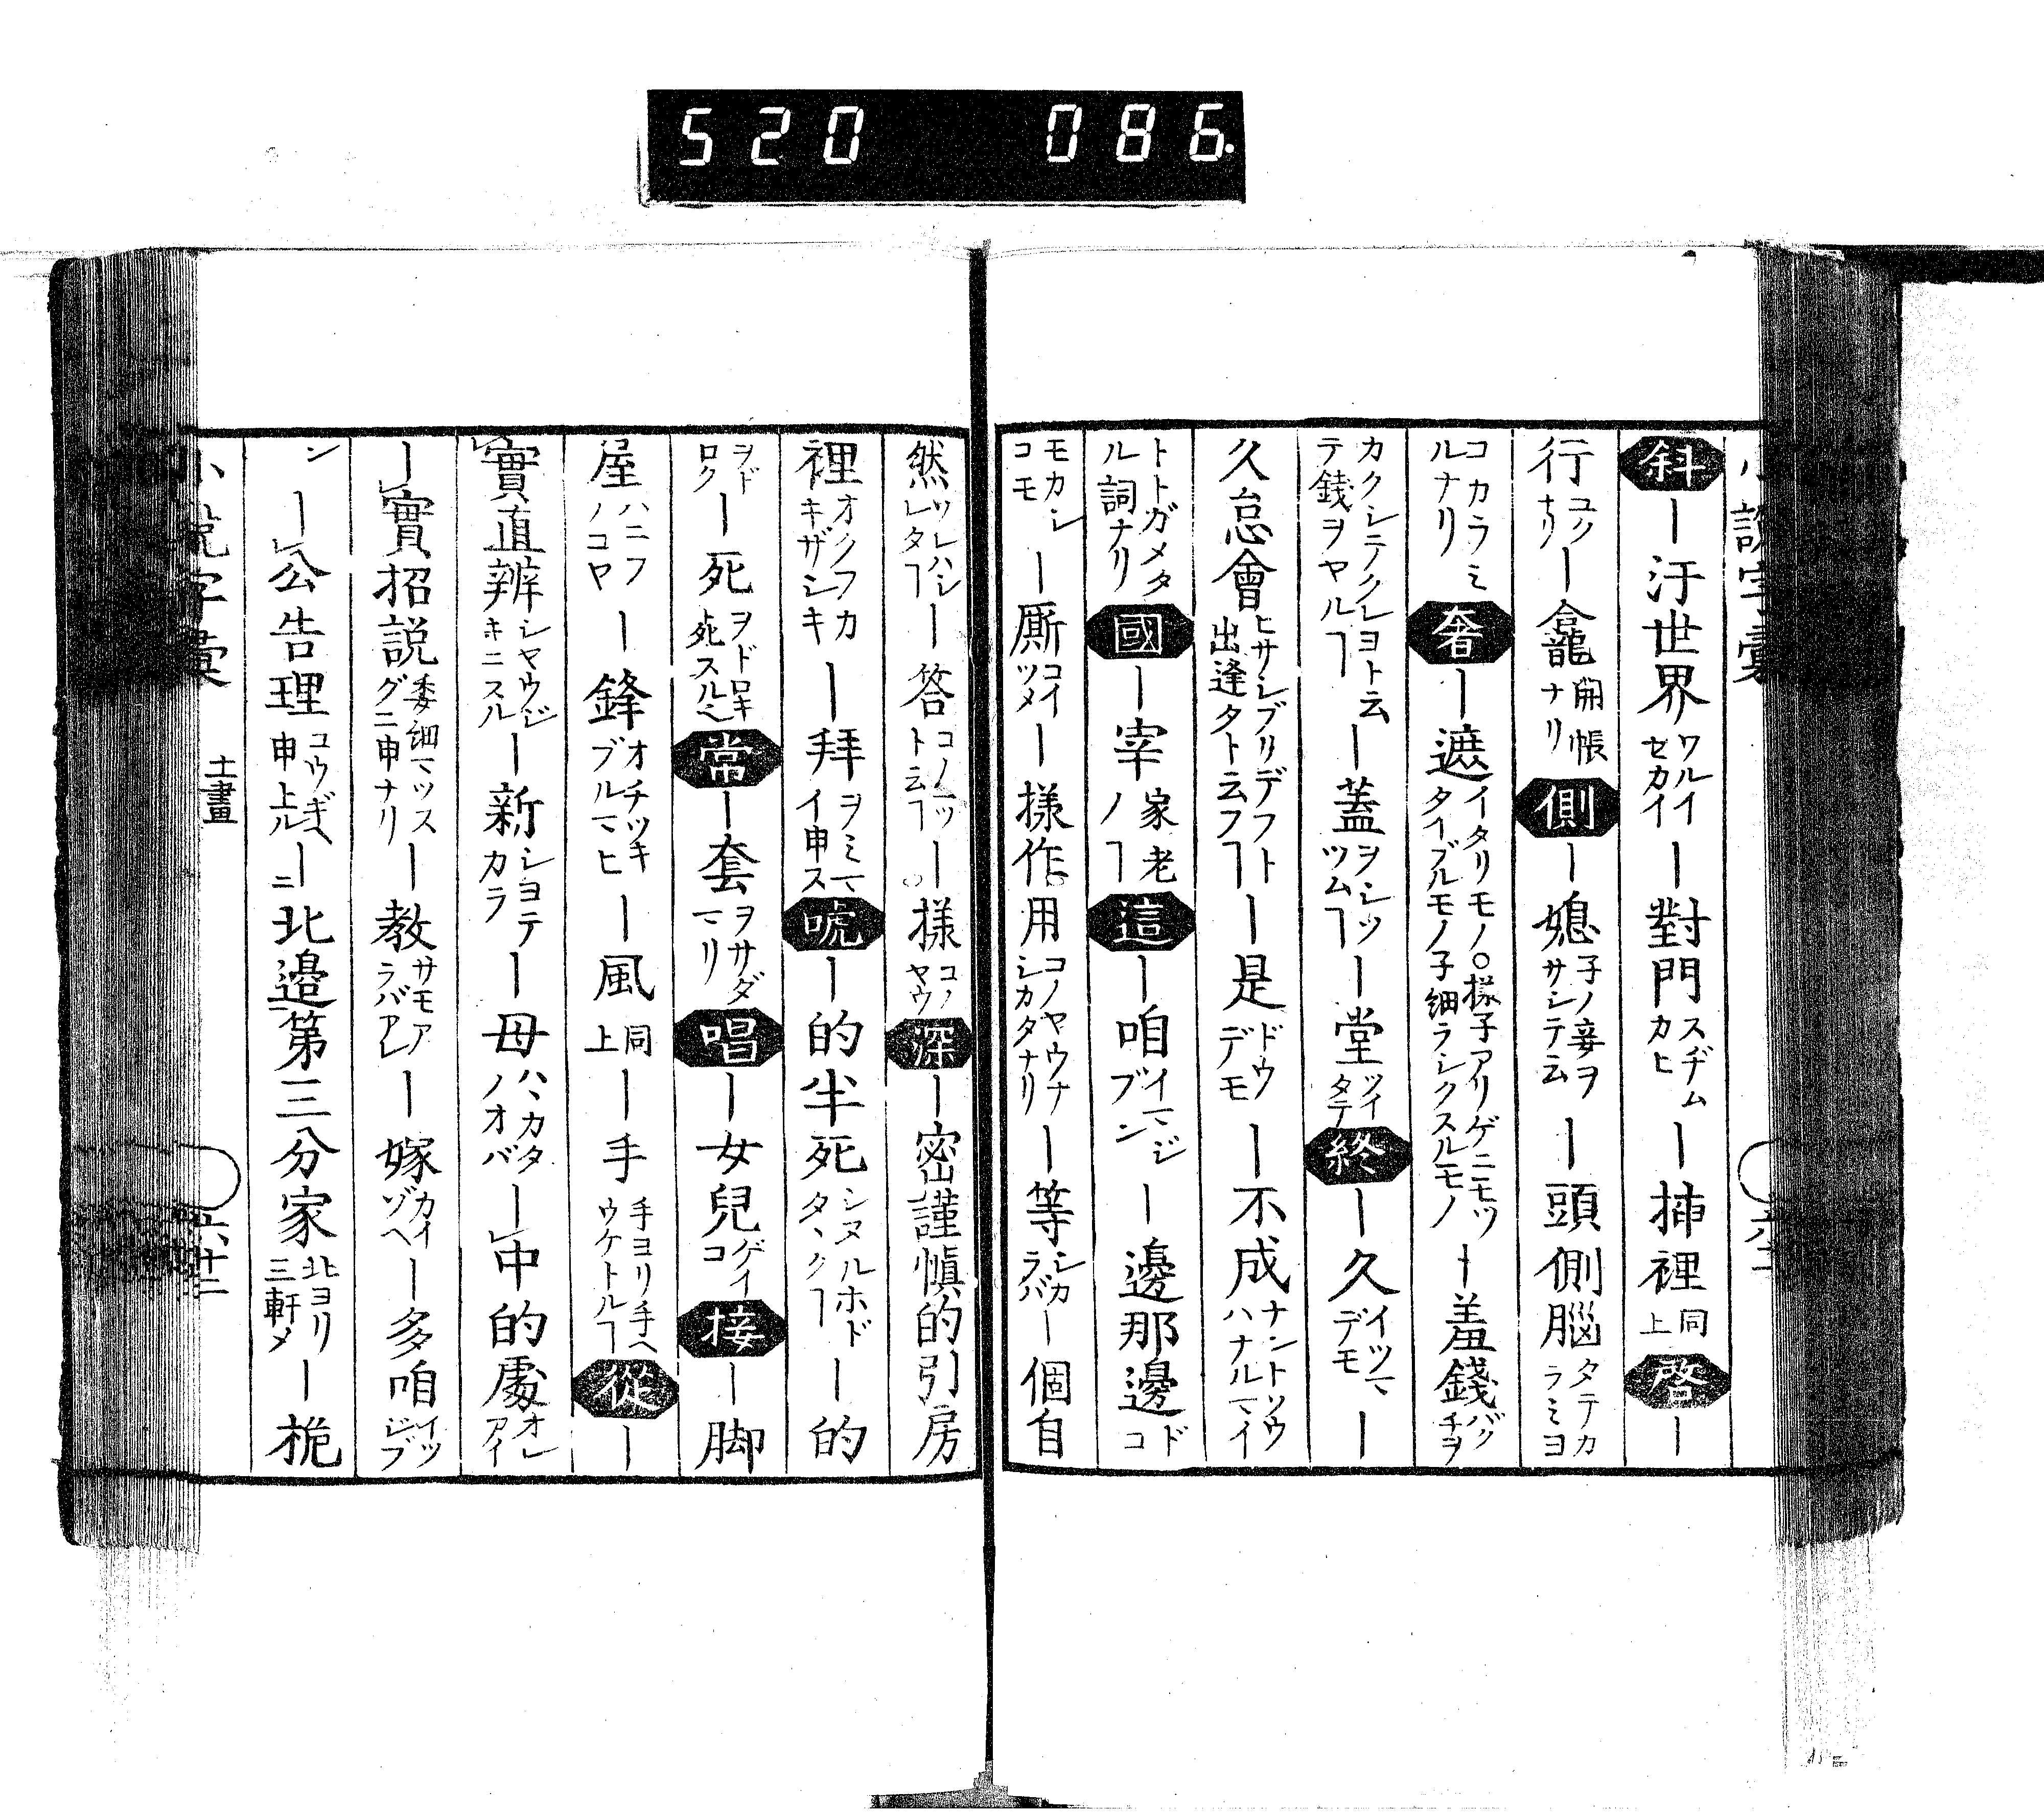 520 086.
小説字彙
斜｜汙世界ワルイセカイ｜對門スヂムカヒ｜挿裡同上啓｜
行ユクナリ｜龕開帳ナリ側｜媳子ノ妾ヲサシテ云｜頭側腦タテカラミヨ
コカラミルナリ奢｜遮イタリモノ○様子アリゲニモツタイブルモノ子細ラシクスルモノ｜羞錢バクチヲ
カクシテクレヨト云テ錢ヲヤルヿ｜蓋ヲシツツムヿ｜堂ツイタテ終｜久イツマデモ｜
久怠會ヒサシブリデフト出逢タト云フヿ｜是ドウデモ｜不成ナントソウハナルマイ
トトガメタル詞ナリ國｜宰家老ノヿ這｜咱イマジブン｜邊那邊ドコ
モカシコモ｜厮コイツメ｜樣作用コノヤウナシカタナリ｜等シカラバ｜個自
然ソレハシレタヿ｜答コノマットト云ヿ｜樣コノヤウ深｜密謹愼的引房
裡オクフカキザシキ｜拜ヲミマイ申ス唬｜的半死シヌルホドタヽクヿ｜的
ヲドロク｜死ヲドロキ死スル也常｜套ヲサダマリ唱｜女兒ゲイコ接｜脚
屋ハニフノコヤ｜鋒オチツキブルマヒ｜風同上｜手手ヨリ手ヘウケトルヿ從｜
實直辨シヤウジキニスル｜新シヨテカラ｜母ハヽカタノオバ｜中的處オレアイ
｜實招説委細マツスグニ申ナリ｜教サモアラバアレ｜嫁カイゾヘ｜多咱イツジブ
ン｜公告理コウギヘ申上ル｜ニ北邉第三分家北ヨリ三軒メ｜桅
小説字彙 土畫 六十二